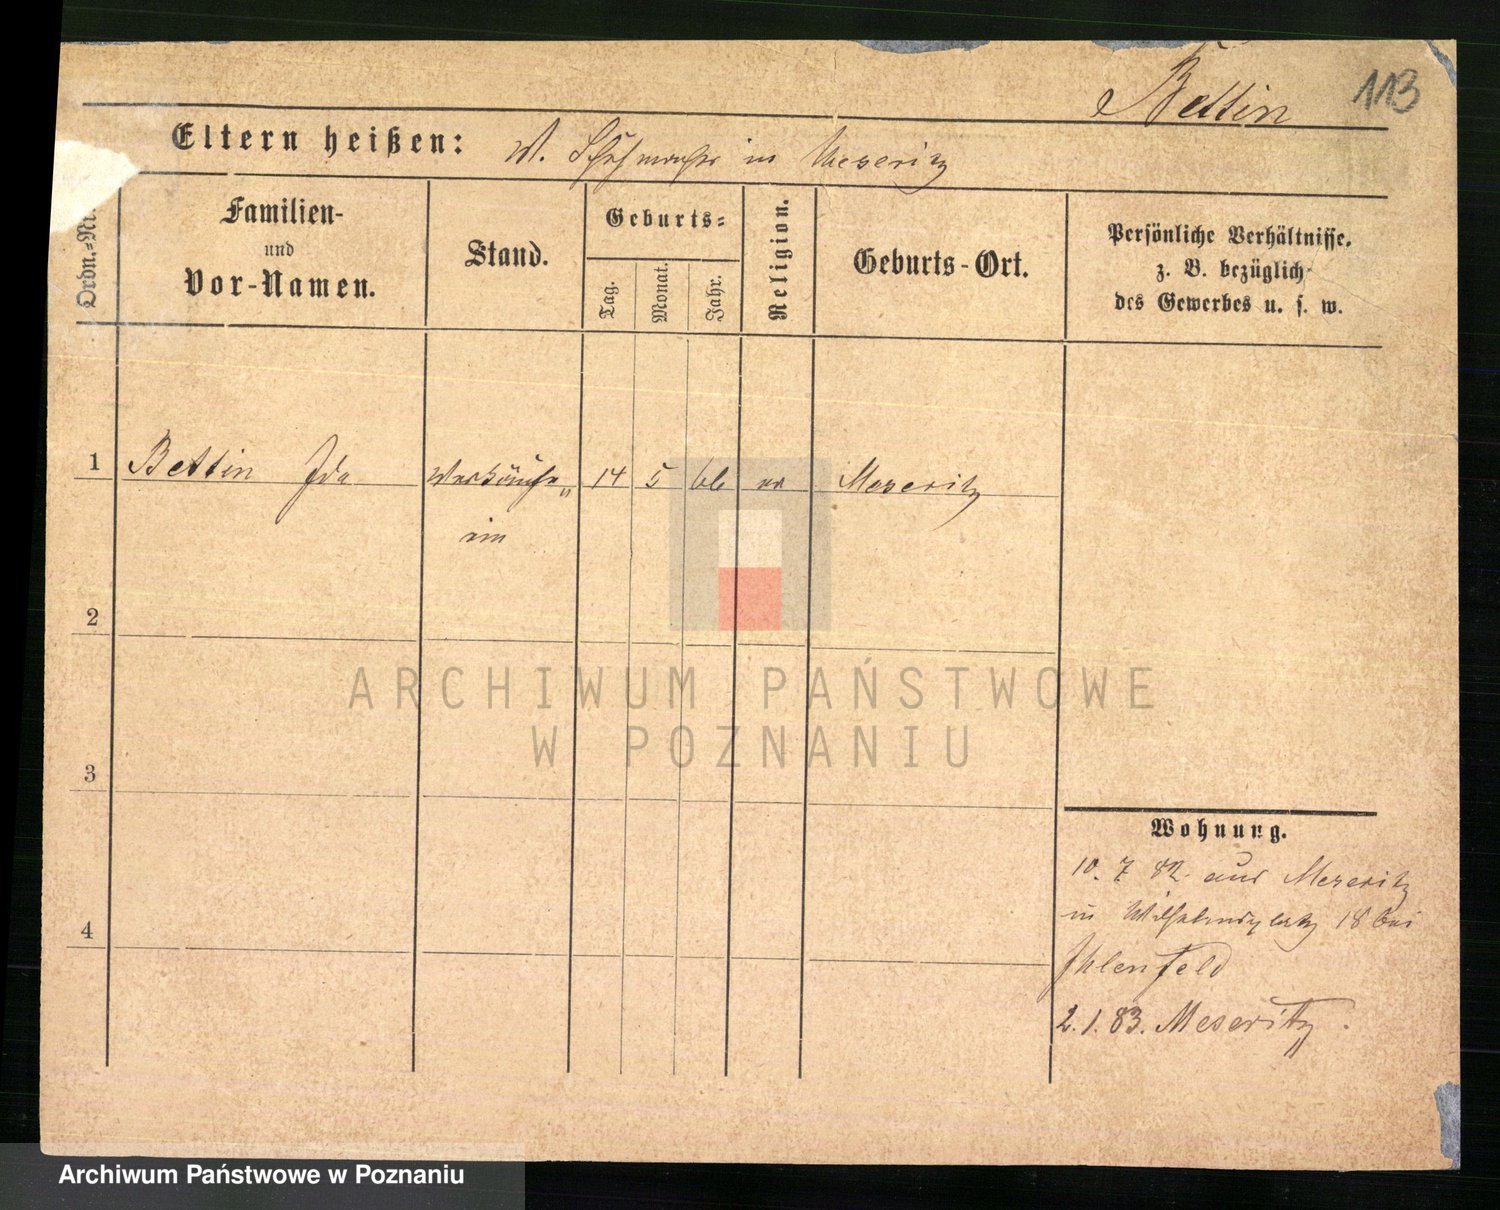 Bettin 113
Eltern heißen: W. Schuhmacher in Meseritz
Ordn.-Nr.
Familien-
und
Vor-Namen.
Stand.
Geburts-
Tag.
Monat.
Jahr.
Religion.
Geburts-Ort.
Persönliche Verhältnisse.
z. B. bezüglich
des Gewerbes u. s. w.
1 Bettin Ida Verkäufe- 14 5 66 ev Meseritz
rin
2
3
4
ARCHIWUM PAŃSTWOWE
W POZNANIU
Wohnung.
10. 7 82. aus Meseritz
in Wilhelmsplatz 18 bei
Ihlenfeld
2. 1. 83. Meseritz.
Archiwum Państwowe w Poznaniu